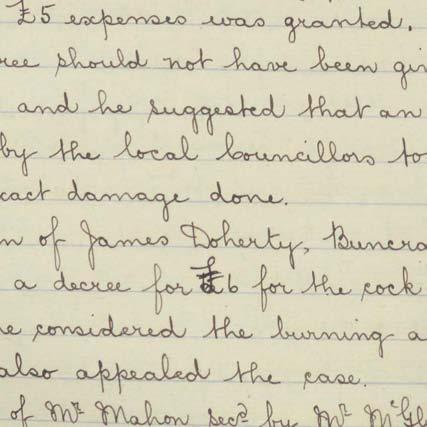 £5 expenses was granted.
ree should not have been gi
and he suggested that an
by the local Councillors to
xact damage done.
n of James Doherty, Buncra
a decree for £6 for the cock
e considered the burning a
also appealed the case.
of Mr Mahon secd by Mr McGl